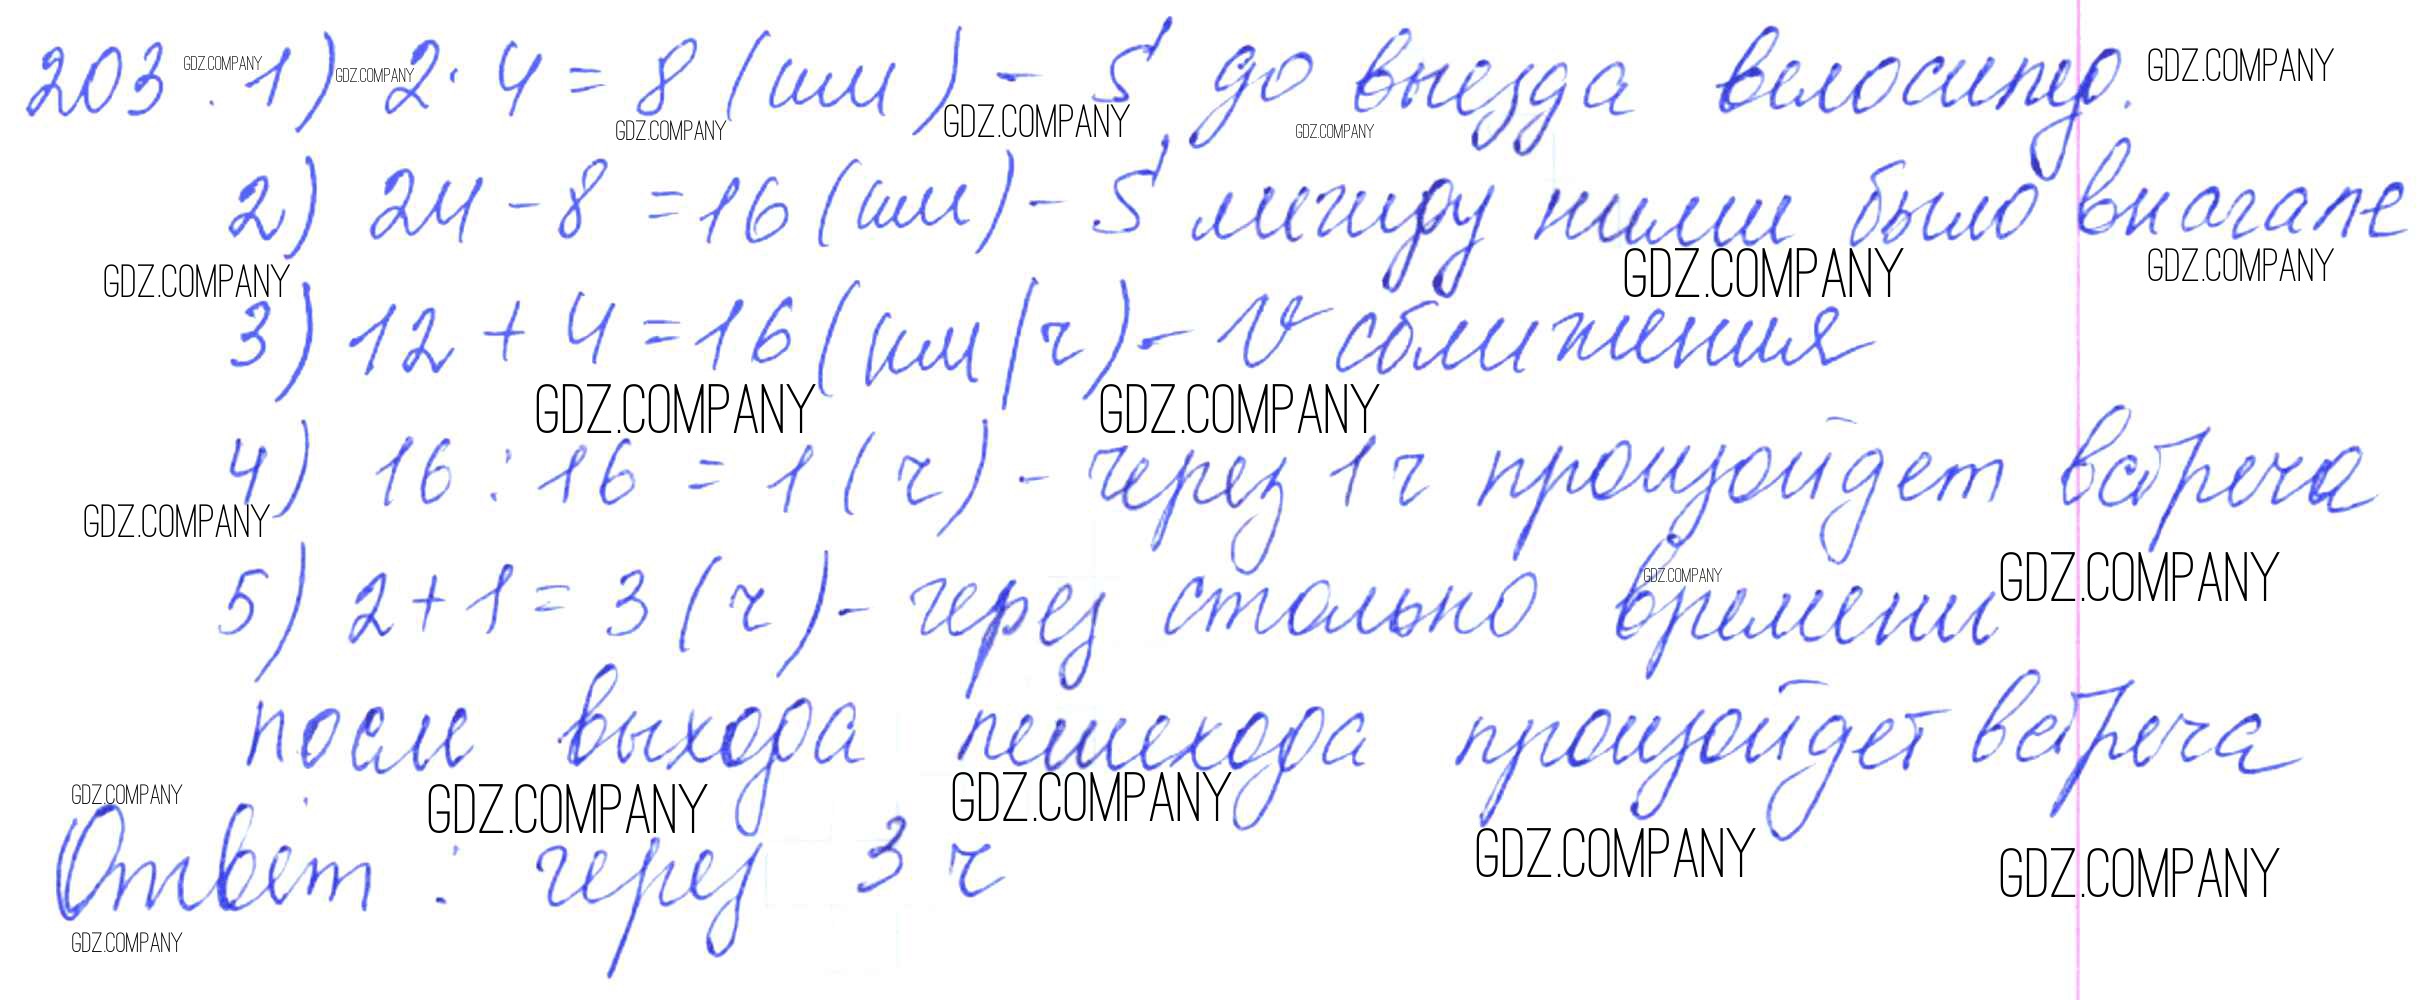 203. 1) 2 · 4 = 8 (км) - S до выезда велосипед.
2) 24 - 8 = 16 (км) - S между ними было вначале
3) 12 + 4 = 16 (км/ч) - V сближения
4) 16 : 16 = 1 (ч) - через 1 ч произойдет встреча
5) 2 + 1 = 3 (ч) - через столько времени
после выхода пешехода произойдет встреча
Ответ: через 3 ч
GDZ.COMPANY GDZ.COMPANY GDZ.COMPANY GDZ.COMPANY GDZ.COMPANY GDZ.COMPANY
GDZ.COMPANY GDZ.COMPANY GDZ.COMPANY
GDZ.COMPANY GDZ.COMPANY
GDZ.COMPANY GDZ.COMPANY GDZ.COMPANY
GDZ.COMPANY GDZ.COMPANY GDZ.COMPANY GDZ.COMPANY GDZ.COMPANY
GDZ.COMPANY